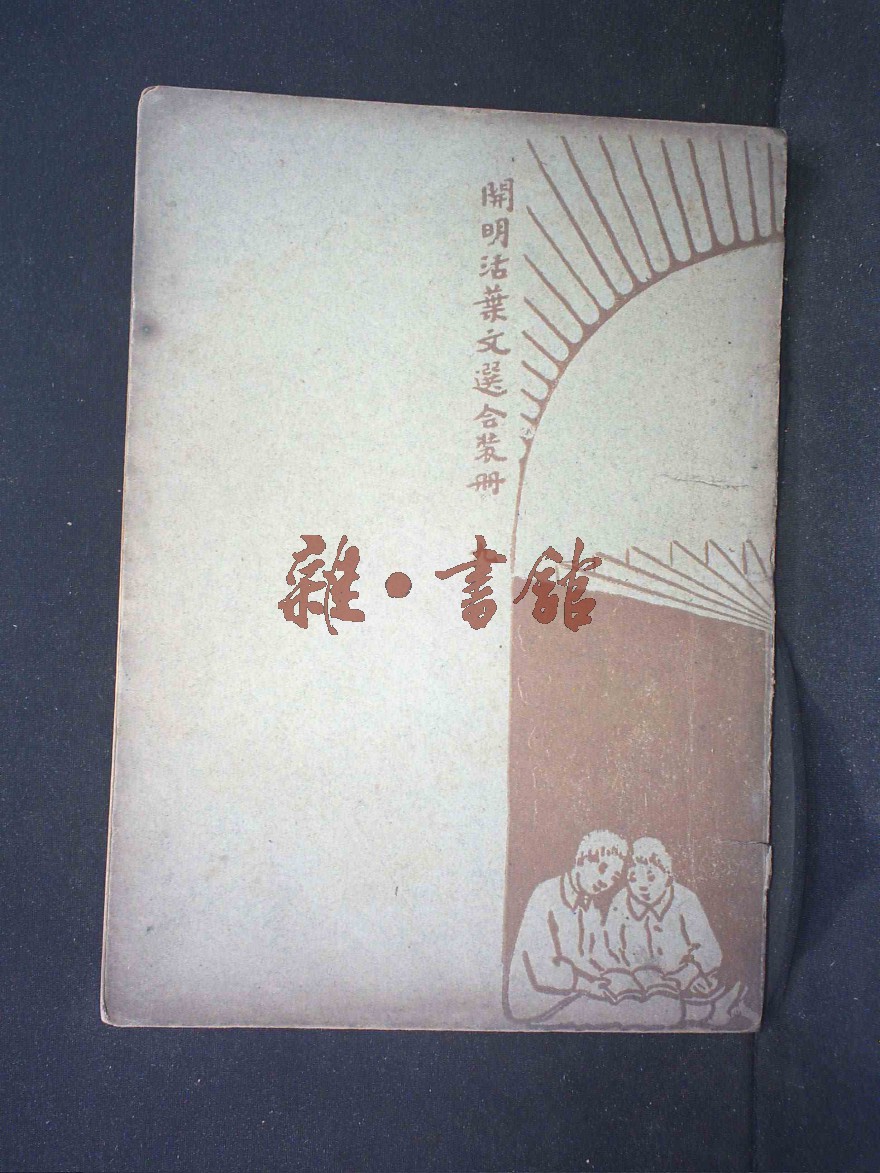 開明活葉文選合裝冊
雜·書館